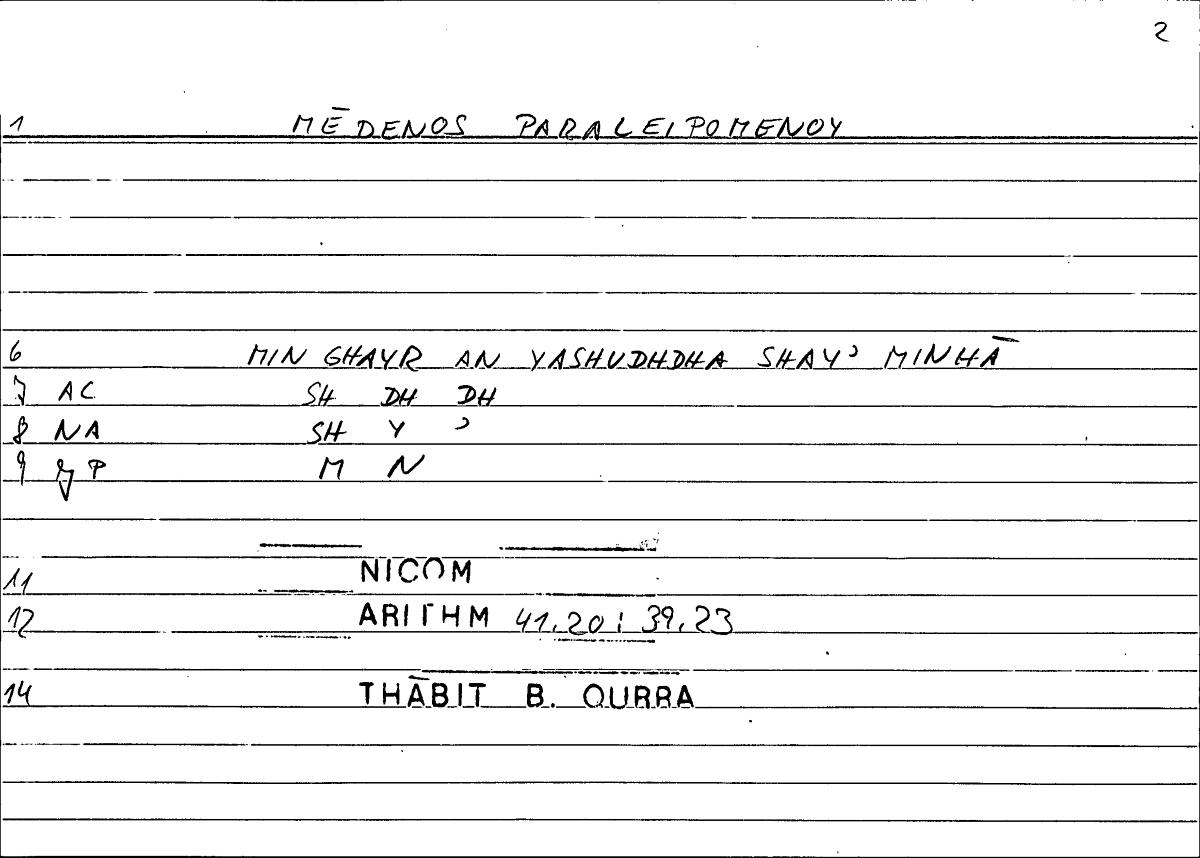 2
1 MĒDENOS PARALEIPOMENOY
6 MIN GHAYR AN YASHUDHDHA SHAYʾ MINHĀ
7 AC SH DH DH
8 NA SH Y ʾ
9 P M N
11 NICOM
12 ARITHM 41,20 : 39,23
14 THĀBIT B. QURRA